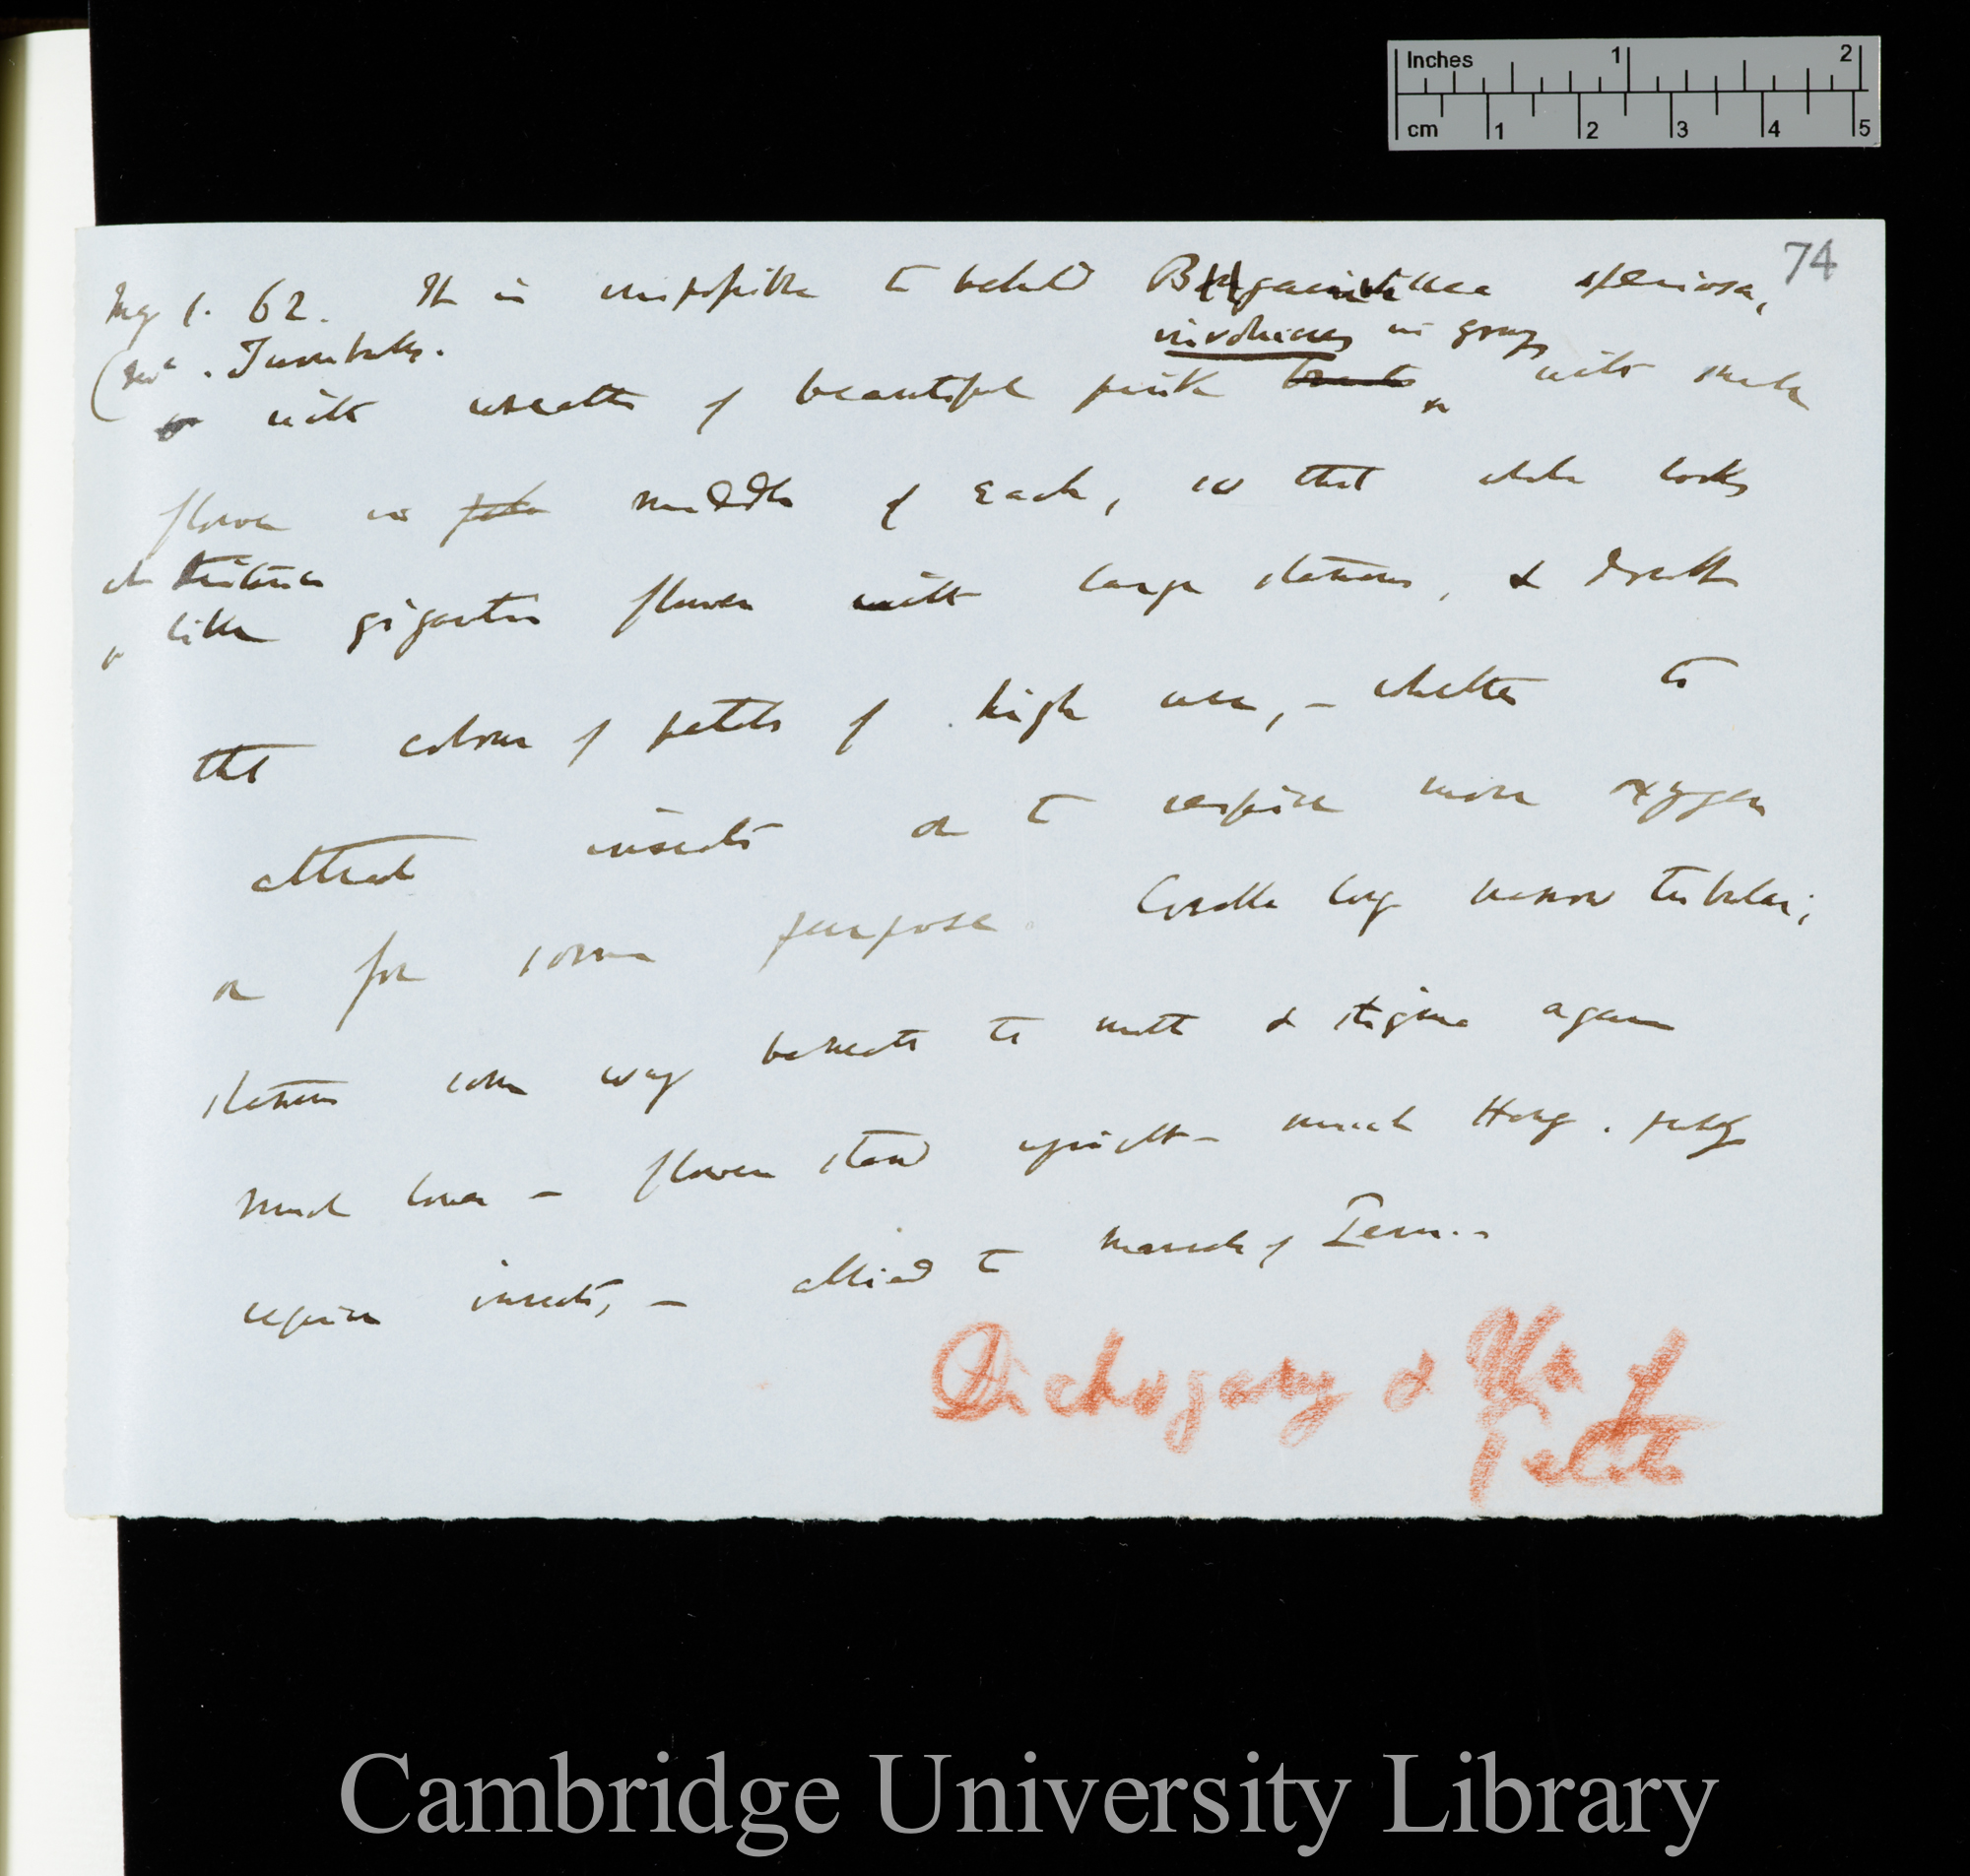 Inches 1 2
cm 1 2 3 4 5
74
May 1. 62. It is impossible to behold Bougainvillea speciosa,
(Mrs. Turnbull's.
involucres in groups
with wreaths of beautiful pink bracts with single
flower in middle of each, so that whole looks
at distance
like gigantic flower with large stamens, & doubt
that colour of petals of high use, — whether to
attract insects or to respire more oxygen
or for some purpose. Corolla long narrow tubular;
stamens some way beneath the mouth & stigma again
much lower — flower stand upright — must
require insects, — allied to Marvel of Peru. —
Dichogamy & Use of
Petals
Cambridge University Library